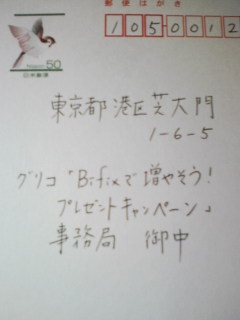 郵便はがき
105-0012
50
日本郵便
東京都港区芝大門
1-6-5
グリコ「Bifixで増やそう!
プレゼントキャンペーン」
事務局 御中